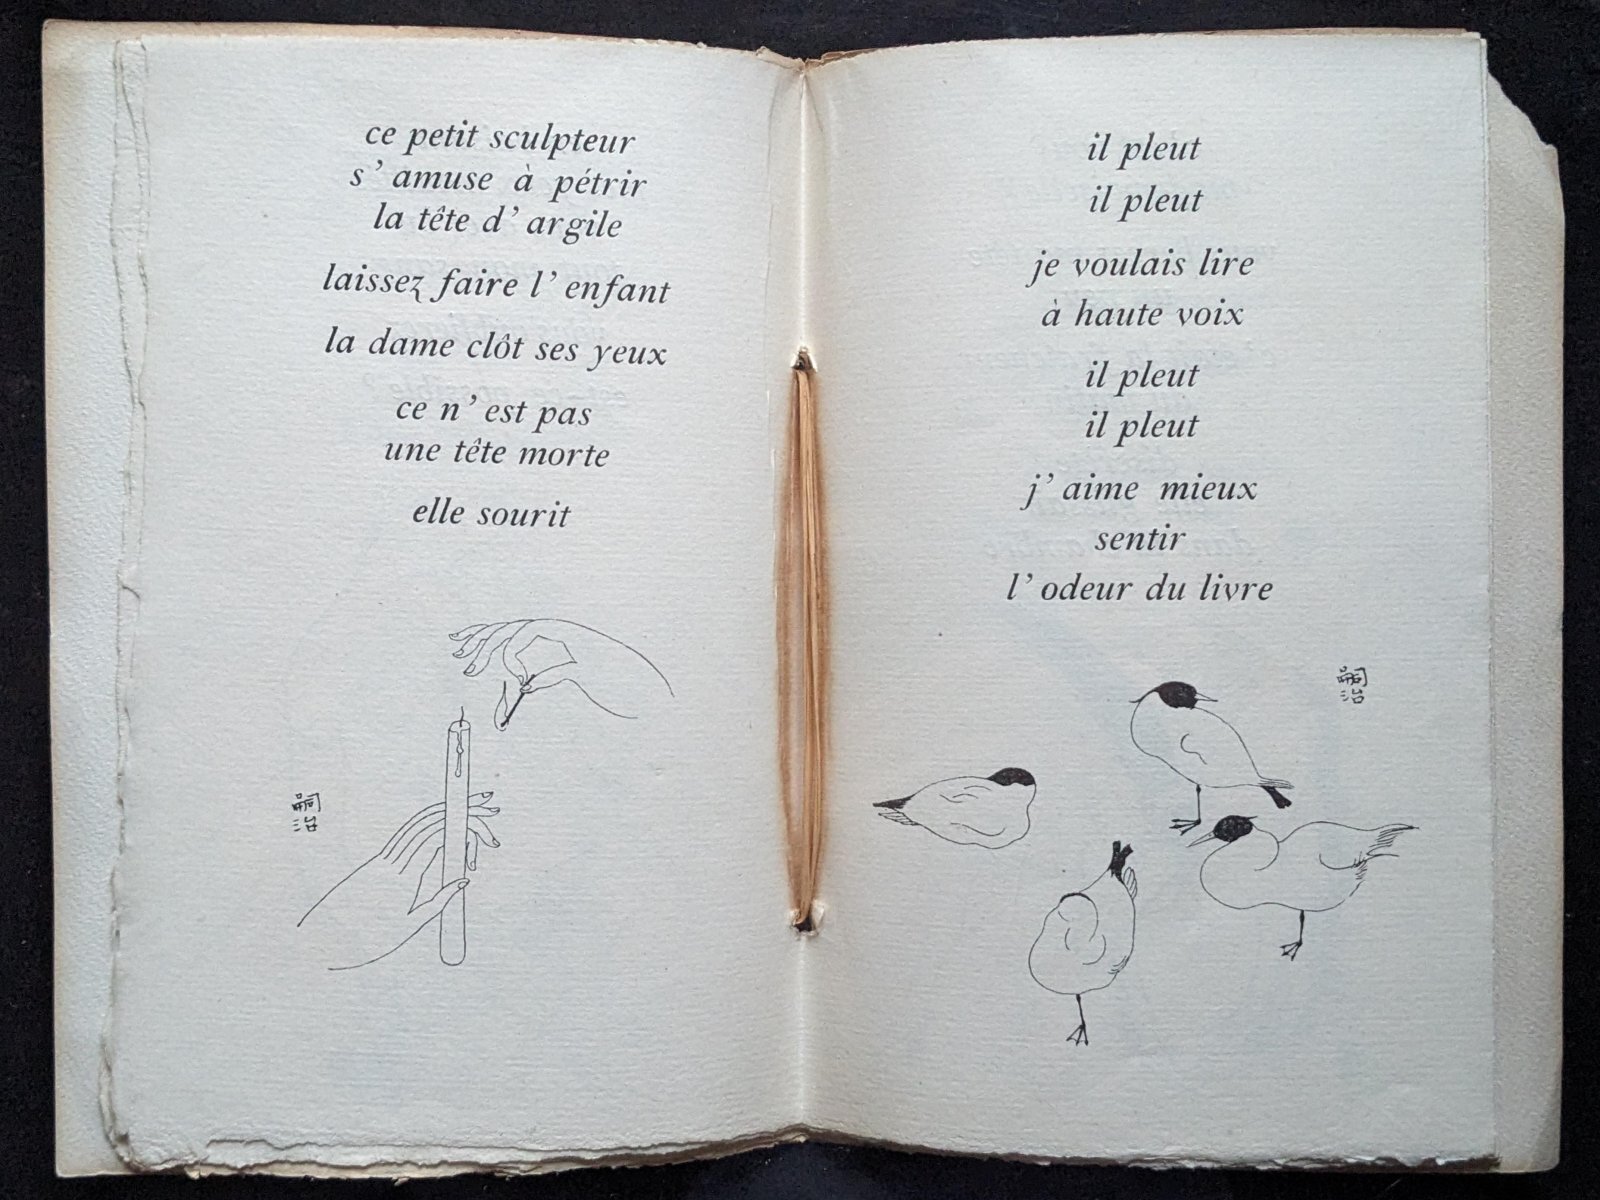 ce petit sculpteur
s' amuse à pétrir
la tête d' argile
laissez faire l' enfant
la dame clôt ses yeux
ce n' est pas
une tête morte
elle sourit
嗣治
il pleut
il pleut
je voulais lire
à haute voix
il pleut
il pleut
j' aime mieux
sentir
l' odeur du livre
嗣治